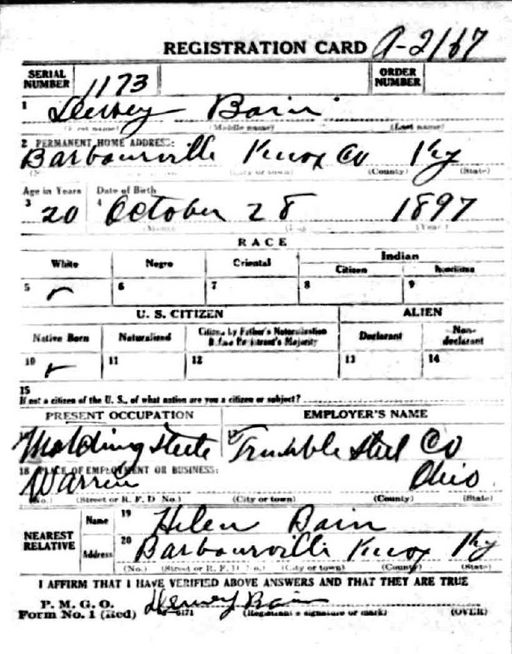 REGISTRATION CARD A-2167
SERIAL NUMBER 1173 ORDER NUMBER
1 Dewey Bain
(First name) (Middle name) (Last name)
2 PERMANENT HOME ADDRESS:
Barbourville Knox Co Ky
(City or town) (County) (State)
Age in Years Date of Birth
3 20 4 October 28 1897
(Month) (Day) (Year)
RACE
White Negro Oriental Indian
Citizen Noncitizen
5 6 7 8 9
U. S. CITIZEN ALIEN
Native Born Naturalized Citizen by Father's Naturalization Before Registrant's Majority Declarant Non-declarant
10 11 12 13 14
15
If not a citizen of the U. S., of what nation are you a citizen or subject?
PRESENT OCCUPATION EMPLOYER'S NAME
Molding 17 Trumble Steel Co
18 PLACE OF EMPLOYMENT OR BUSINESS:
Warren Ohio
(No.) (Street or R. F. D. No.) (City or town) (County) (State)
NEAREST RELATIVE
Name 19 Helen Bain
Address 20 Barbourville Knox Ky
(No.) (Street or R. F. D. No.) (City or town) (County) (State)
I AFFIRM THAT I HAVE VERIFIED ABOVE ANSWERS AND THAT THEY ARE TRUE
P. M. G. O.
Form No. 1 (Red) Dewey Bain
(Registrant's signature or mark) (OVER)